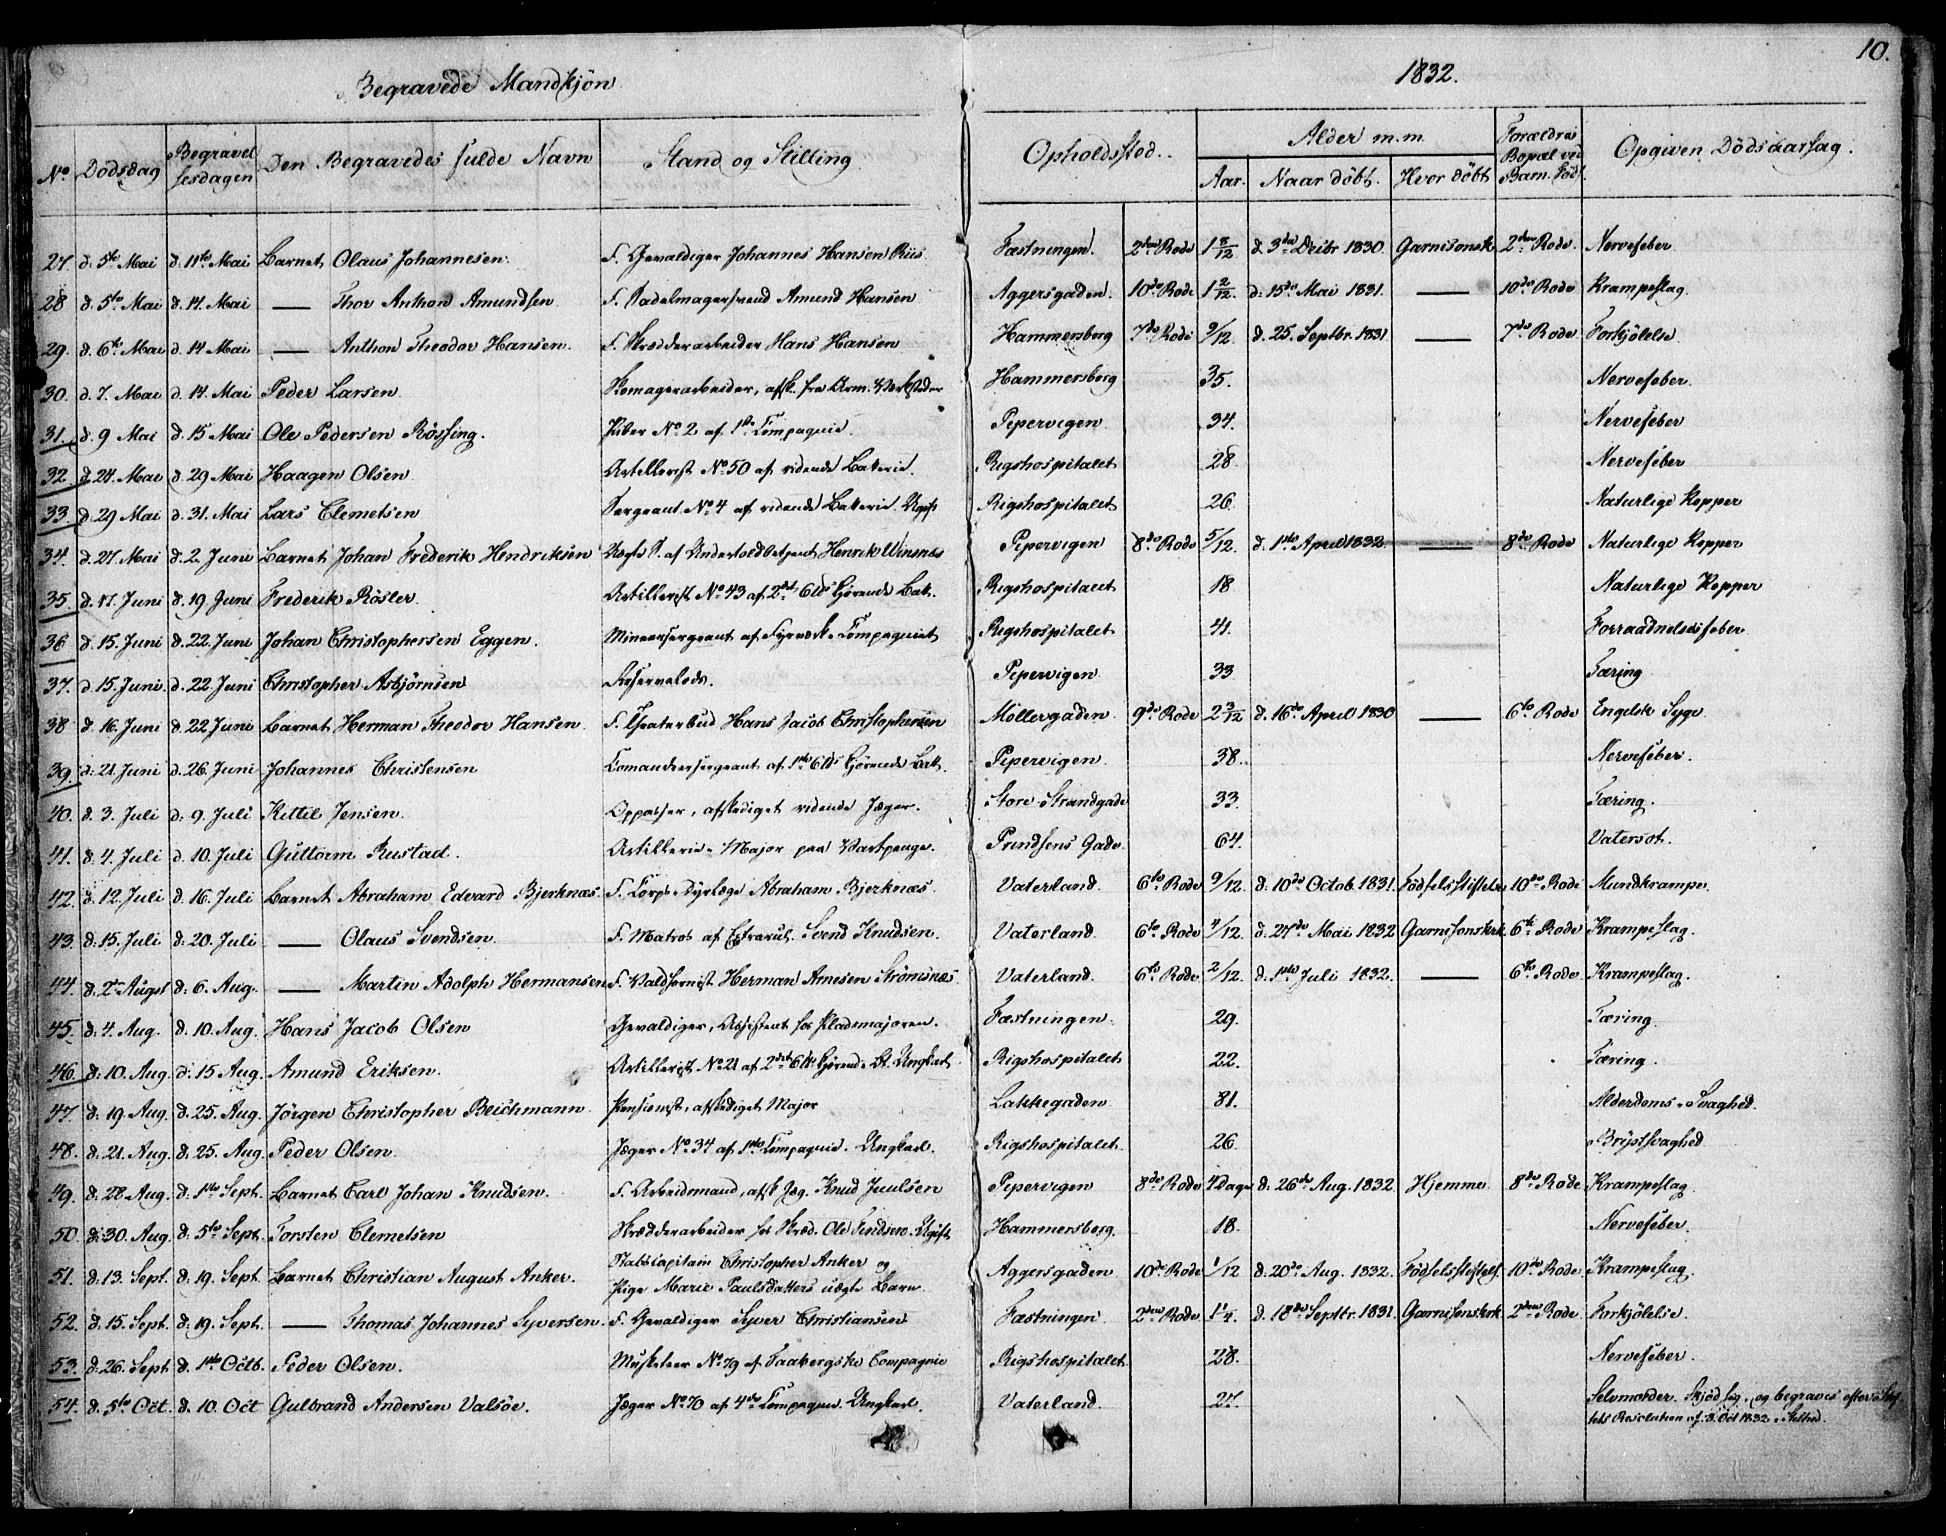 10.
Begravede Mandkjøn
1832.
No Dødsdag Begravelsesdagen Den Begravedes fulde Navn Stand og Stilling Opholdssted. Alder m.m. Aar. Naar døbt. Hvor døbt Forældres Bopæl ved Barn. Fød. Opgiven Dødsaarsag.
27 d. 5te Mai d. 11te Mai Barnet Olaus Johannesen. F. Gevaldiger Johannes Hansen Riis Fæstningen. 2den Rode 1 8/12 d. 3die Decbr 1830 Garnisonsk 2den Rode. Nervefeber
28 d. 5te Mai d. 14. Mai — Thor Anthon Amundsen F. Sadelmagersvend Amund Hansen Aggersgaden. 10de Rode 1 2/12. d. 15de Mai 1831. — 10de Rode Krampeslag.
29. d. 6te Mai d. 14 Mai — Anthon Theodor Hansen. F. Skrædderarbeider Hans Hansen Hammersberg 7de Rode 9/12. d. 25. Septbr. 1831. — 7de Rode Forkjølelse
30. d. 7. Mai d. 14. Mai Peder Larsen Skomagerarbeider, afsk. fra Arm. Værksteder Hammersberg 35. Nervefeber.
31. d. 9 Mai d. 15 Mai Ole Pedersen Røssing. No 2 af 1ste Compagnie. Pepervigen. 34. Nervefeber
32. d. 24. Mai d. 29 Mai Haagen Olsen Artillerist No 50 af ridende Batterie. Rigshospitalet 28. Nervefeber
33. d. 29 Mai d. 31. Mai Lars Clemetsen Sergeant No 4 af ridende Batterie. Ugift Rigshospitalet 26. Naturlige Kopper
34. d. 27. Mai d. 2. Juni Barnet Johan Frederik Hendriksen Uægte S. af Undertoldbetjent Henrik Winsnes Pepervigen 8de Rode 5/12. d. 1ste April 1832. — 8de Rode Naturlige Kopper
35. d. 17. Juni d. 19 Juni Frederik Røsler. Artillerist No 43 af 2det 6tds Kjørende Bat. Rigshospitalet 18 Naturlige Kopper
36 d. 15. Juni d. 22. Juni Johan Christophersen Eggen. Mineersergeant af Fyrværk. Compagniet Rigshospitalet 41. Forraadnelsesfeber
37. d. 15. Juni. d. 22 Juni Christopher Asbjørnsen Pepervigen 33 Tæring
38 d. 16. Juni d. 22 Juni Barnet Herman Theodor Hansen. F. Theaterbud Hans Jacob Christophersen Møllergaden. 9de Rode 2 3/12 d. 16de April 1830 — 6te Rode Engelsk Syge
39. d. 21 Juni d. 26. Juni Johannes Christensen Comandeersergeant af 1ste 6tds Kjørende Bat. Pepervigen. 38. Nervefeber.
40. d. 3. Juli d. 9. Juli Kittil Jensen. Oppasser, afskediget ridende Jæger. Store Strandgade 33. Tæring.
41. d. 4. Juli d. 10. Juli Guttorm Rustad. Artillerie-Major paa Vartpenge. Prindsens Gade. 64. Vatersot.
42. d. 12. Juli d. 16. Juli Barnet Abraham Edvard Bjerknæs. F. Corps-Dyrlæge Abraham Bjerknæs Vaterland. 6te Rode 9/12. d. 10de Octob. 1831. Fødselsstiftels. 10de Rode Mundkrampe.
43. d. 15. Juli d. 20. Juli — Olaus Svendsen. F. Matros af Extrarul. Svend Knudsen. Vaterland. 6te Rode 4/12. d. 27de Mai 1832 Garnisonskrk 6te Rode Krampeslag.
44. d. 2den Augst d. 6. Aug. — Martin Adolph Hermansen F. Valdhornist Herman Arnesen Strømsnæs Vaterland. 6te Rode 2/12. d. 1ste Juli 1832. — 6te Rode Krampeslag.
45. d. 4. Aug. d. 10. Aug. Hans Jacob Olsen Gevaldiger, Assistent hos Pladsmajoren. Fæstningen. 29. Tæring
46. d. 10. Aug. d. 15 Aug. Amund Eriksen. Artillerist No 21 af 2det 6tds Kjørende Bt. Ungkarl Rigshospitalet 22. Tæring.
47. d. 19. Aug. d. 25. Aug. Jørgen Christopher Beichmann Pensionist, afskediget Major Lakkegaden 81. Alderdoms-Svaghed.
48. d. 21. Aug. d. 25. Aug. Peder Olsen. Jæger No 34 af 1ste Compagnie. Ungkarl. Rigshospitalet. 26. Brystsvaghed
49. d. 28 Aug. d. 1ste Sept. Barnet Carl Johan Knudsen. F. Arbeidsmand, afsk. Jæg. Knud Juulsen Pepervigen 8de Rode 4 Dage d. 26de Aug. 1832 Hjemme 8de Rode Krampeslag.
50. d. 30. Aug. d. 5te Sept. Torsten Clemetsen Skrædderarbeider hos Skræd. Ole Ugift Hammersberg. 18. Nervefeber.
51. d. 13. Sept. d. 19. Sept. Barnet Christian August Anker. Stabscapitain Christopher Anker og
Pige Marie Paulsdatters uægte Barn. Aggersgaden 10de Rode 1/12 d. 20de Aug. 1832. Fødselsstiftels. 10de Rode Krampeslag.
52. d. 15. Sept. d. 19. Sept. — Thomas Johannes Syversen. F. Gevaldiger Syver Christiansen Fæstningen 2den Rode 1 1/4. d. 18de Septtr. 1831. Garnisonskrk 2den Rode Forkjølelse.
53. d. 26. Sept. d. 1ste Octb. Peder Olsen. Musketeer No 79 af Faabergske Compagnie Rigshospitalet. 28. Nervefeber.
54. d. 5te Oct. d. 10. Oct Gulbrand Andersen Valsøe. Jæger No 70 af 4de Compagnie. Ungkarl. Vaterland. 27. Selvmorder. og begraves efter
Resolution af 8. Oct 1832 i Stilhed.